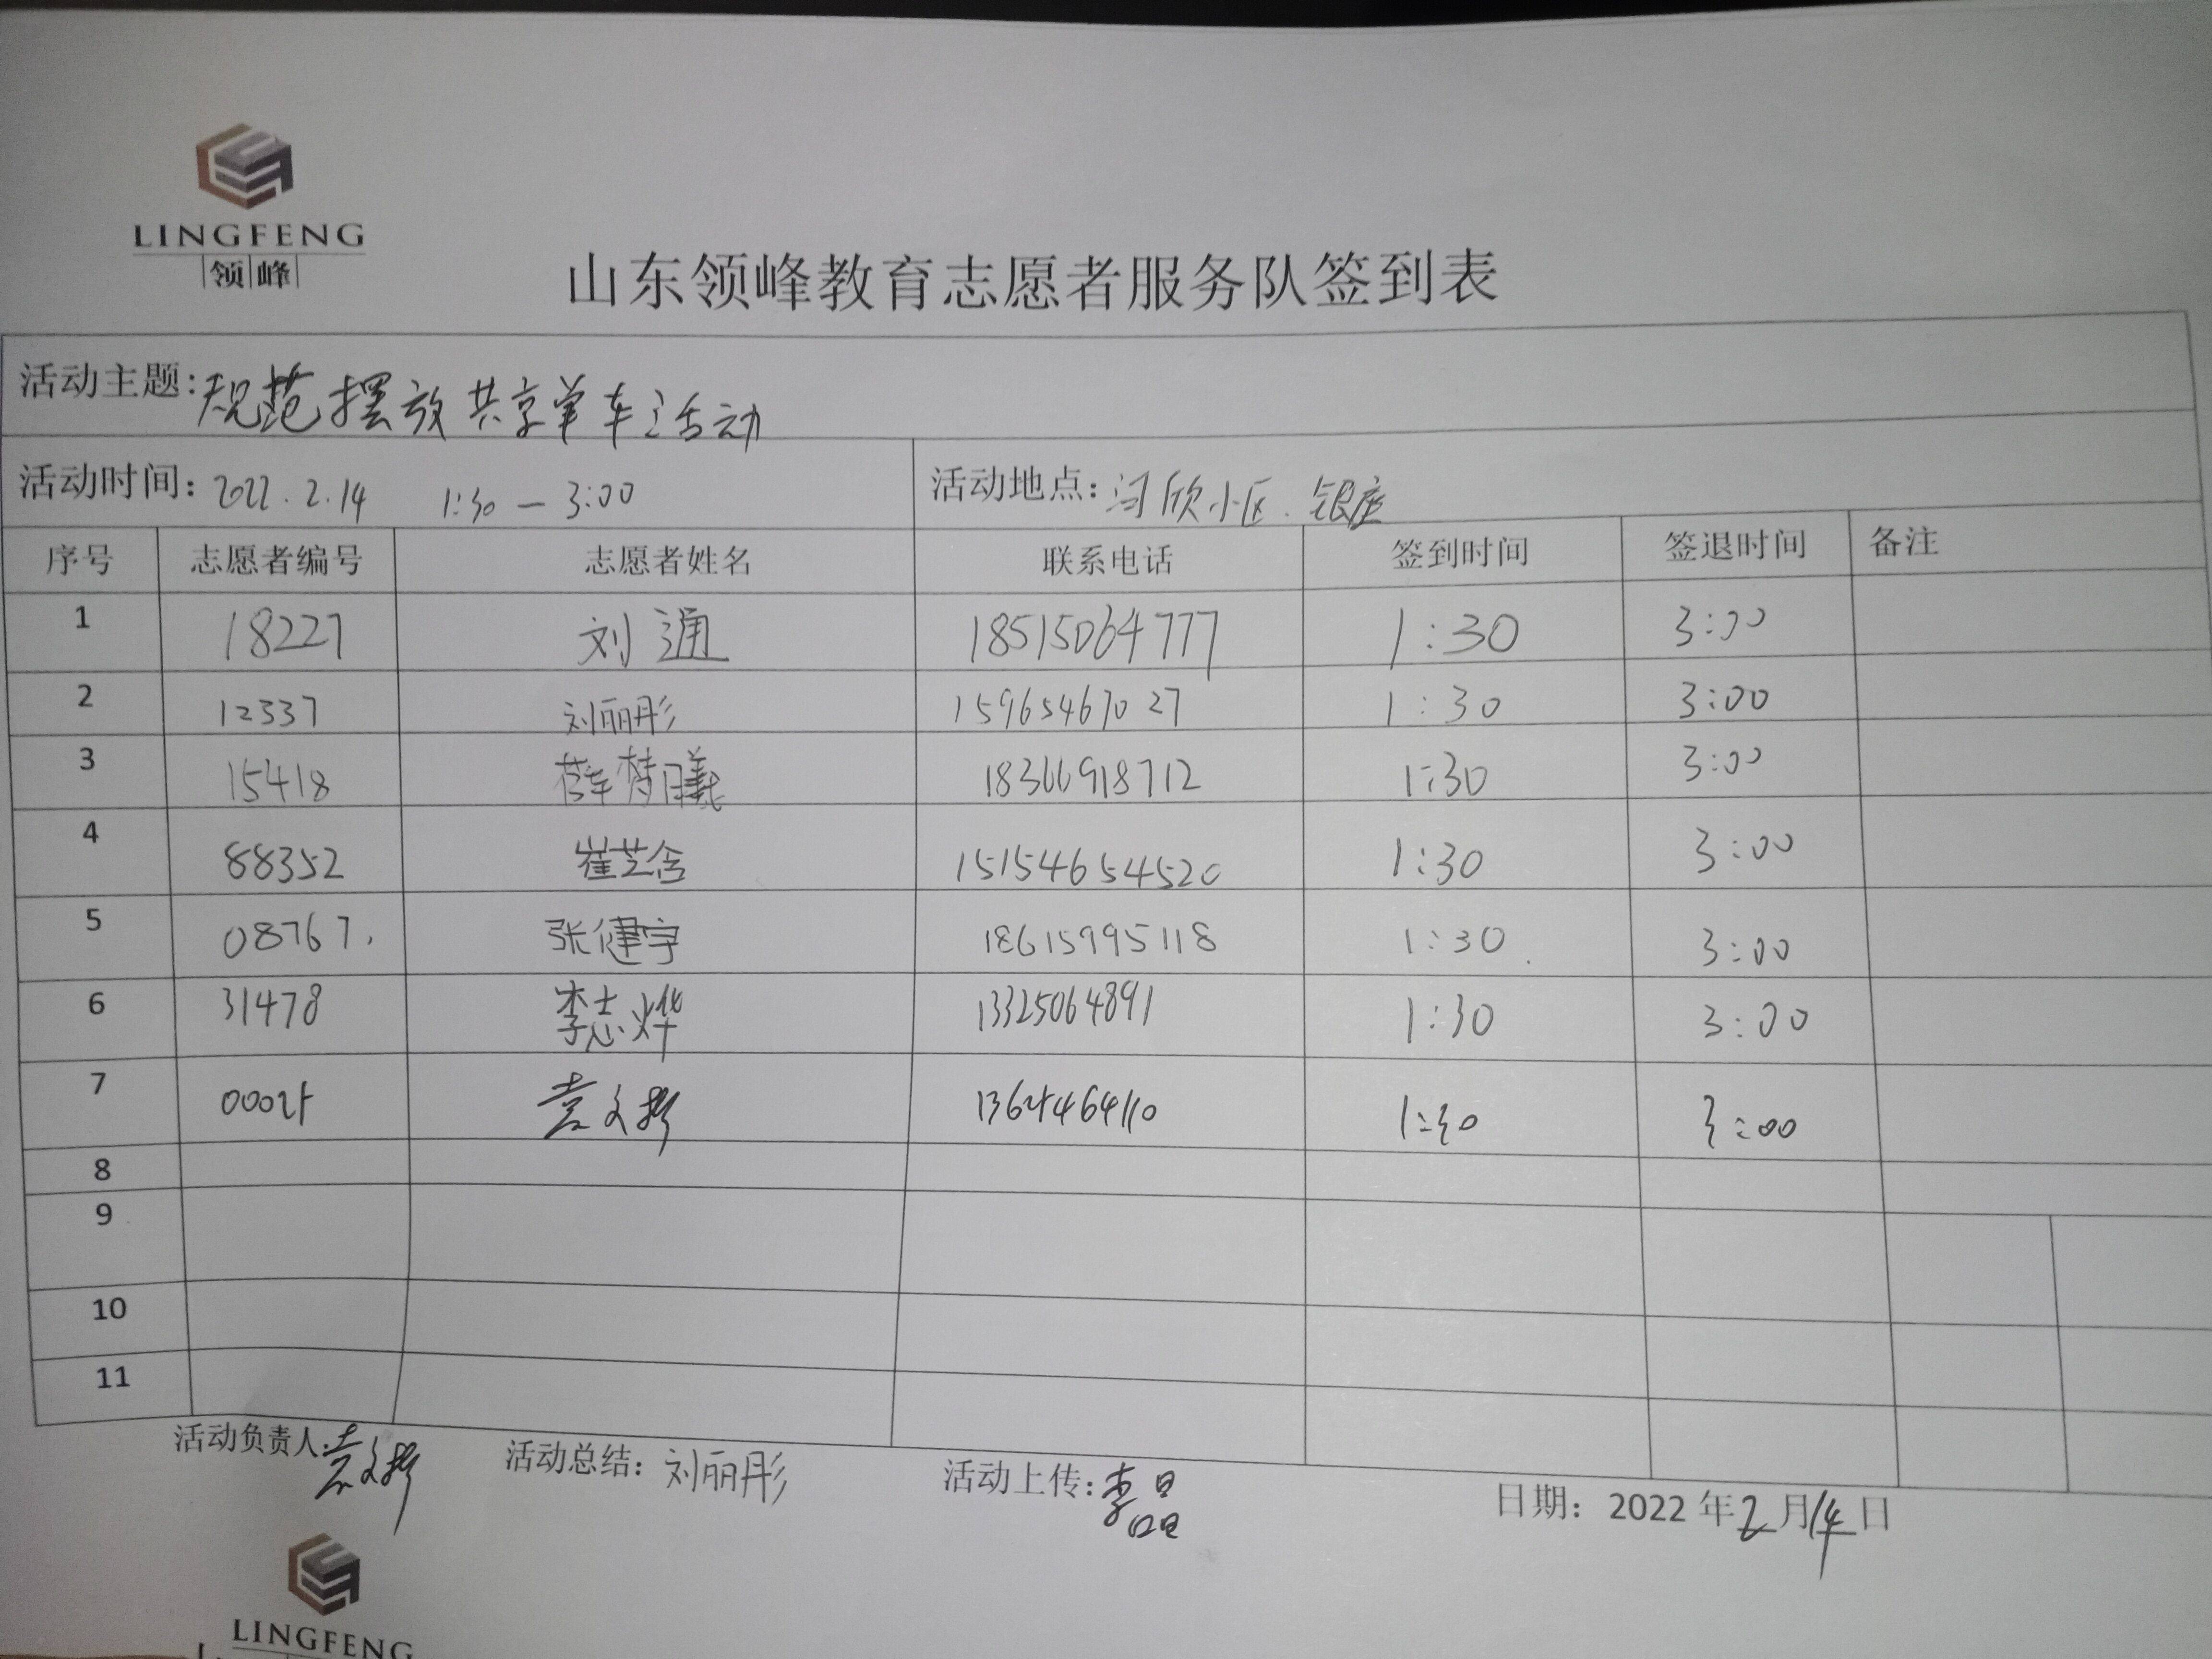 LINGFENG
领峰
山东领峰教育志愿者服务队签到表
活动主题:规范摆放共享单车活动
活动时间:2022.2.14 1:30—3:00 活动地点:河欣小区.银座
序号 志愿者编号 志愿者姓名 联系电话 签到时间 签退时间 备注
1 18227 刘通 18515064777 1:30 3:00
2 12337 刘丽彤 15965467027 1:30 3:00
3 15418 薛梦曦 18366918712 1:30 3:00
4 88352 崔芝含 15154654520 1:30 3:00
5 08767. 张健宇 18615995118 1:30 3:00
6 31478 李志烨 13325064891 1:30 3:00
7 袁文 1:30 3:00
8
9
10
11
活动负责人:袁文 活动总结:刘丽彤 活动上传:李晶 日期:2022年2月14日
LINGFENG